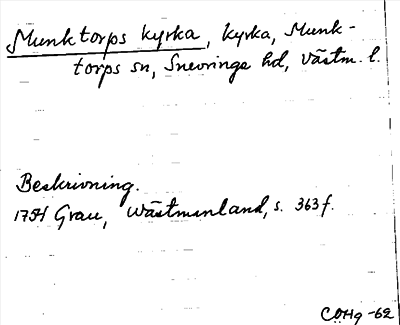 Munktorps kyrka, kyrka, Munk-
torps sn, Snevringe hd, Västm. l.
Beskrivning.
1754 Grau, Wästmanland, s. 363 f.
COHg -62